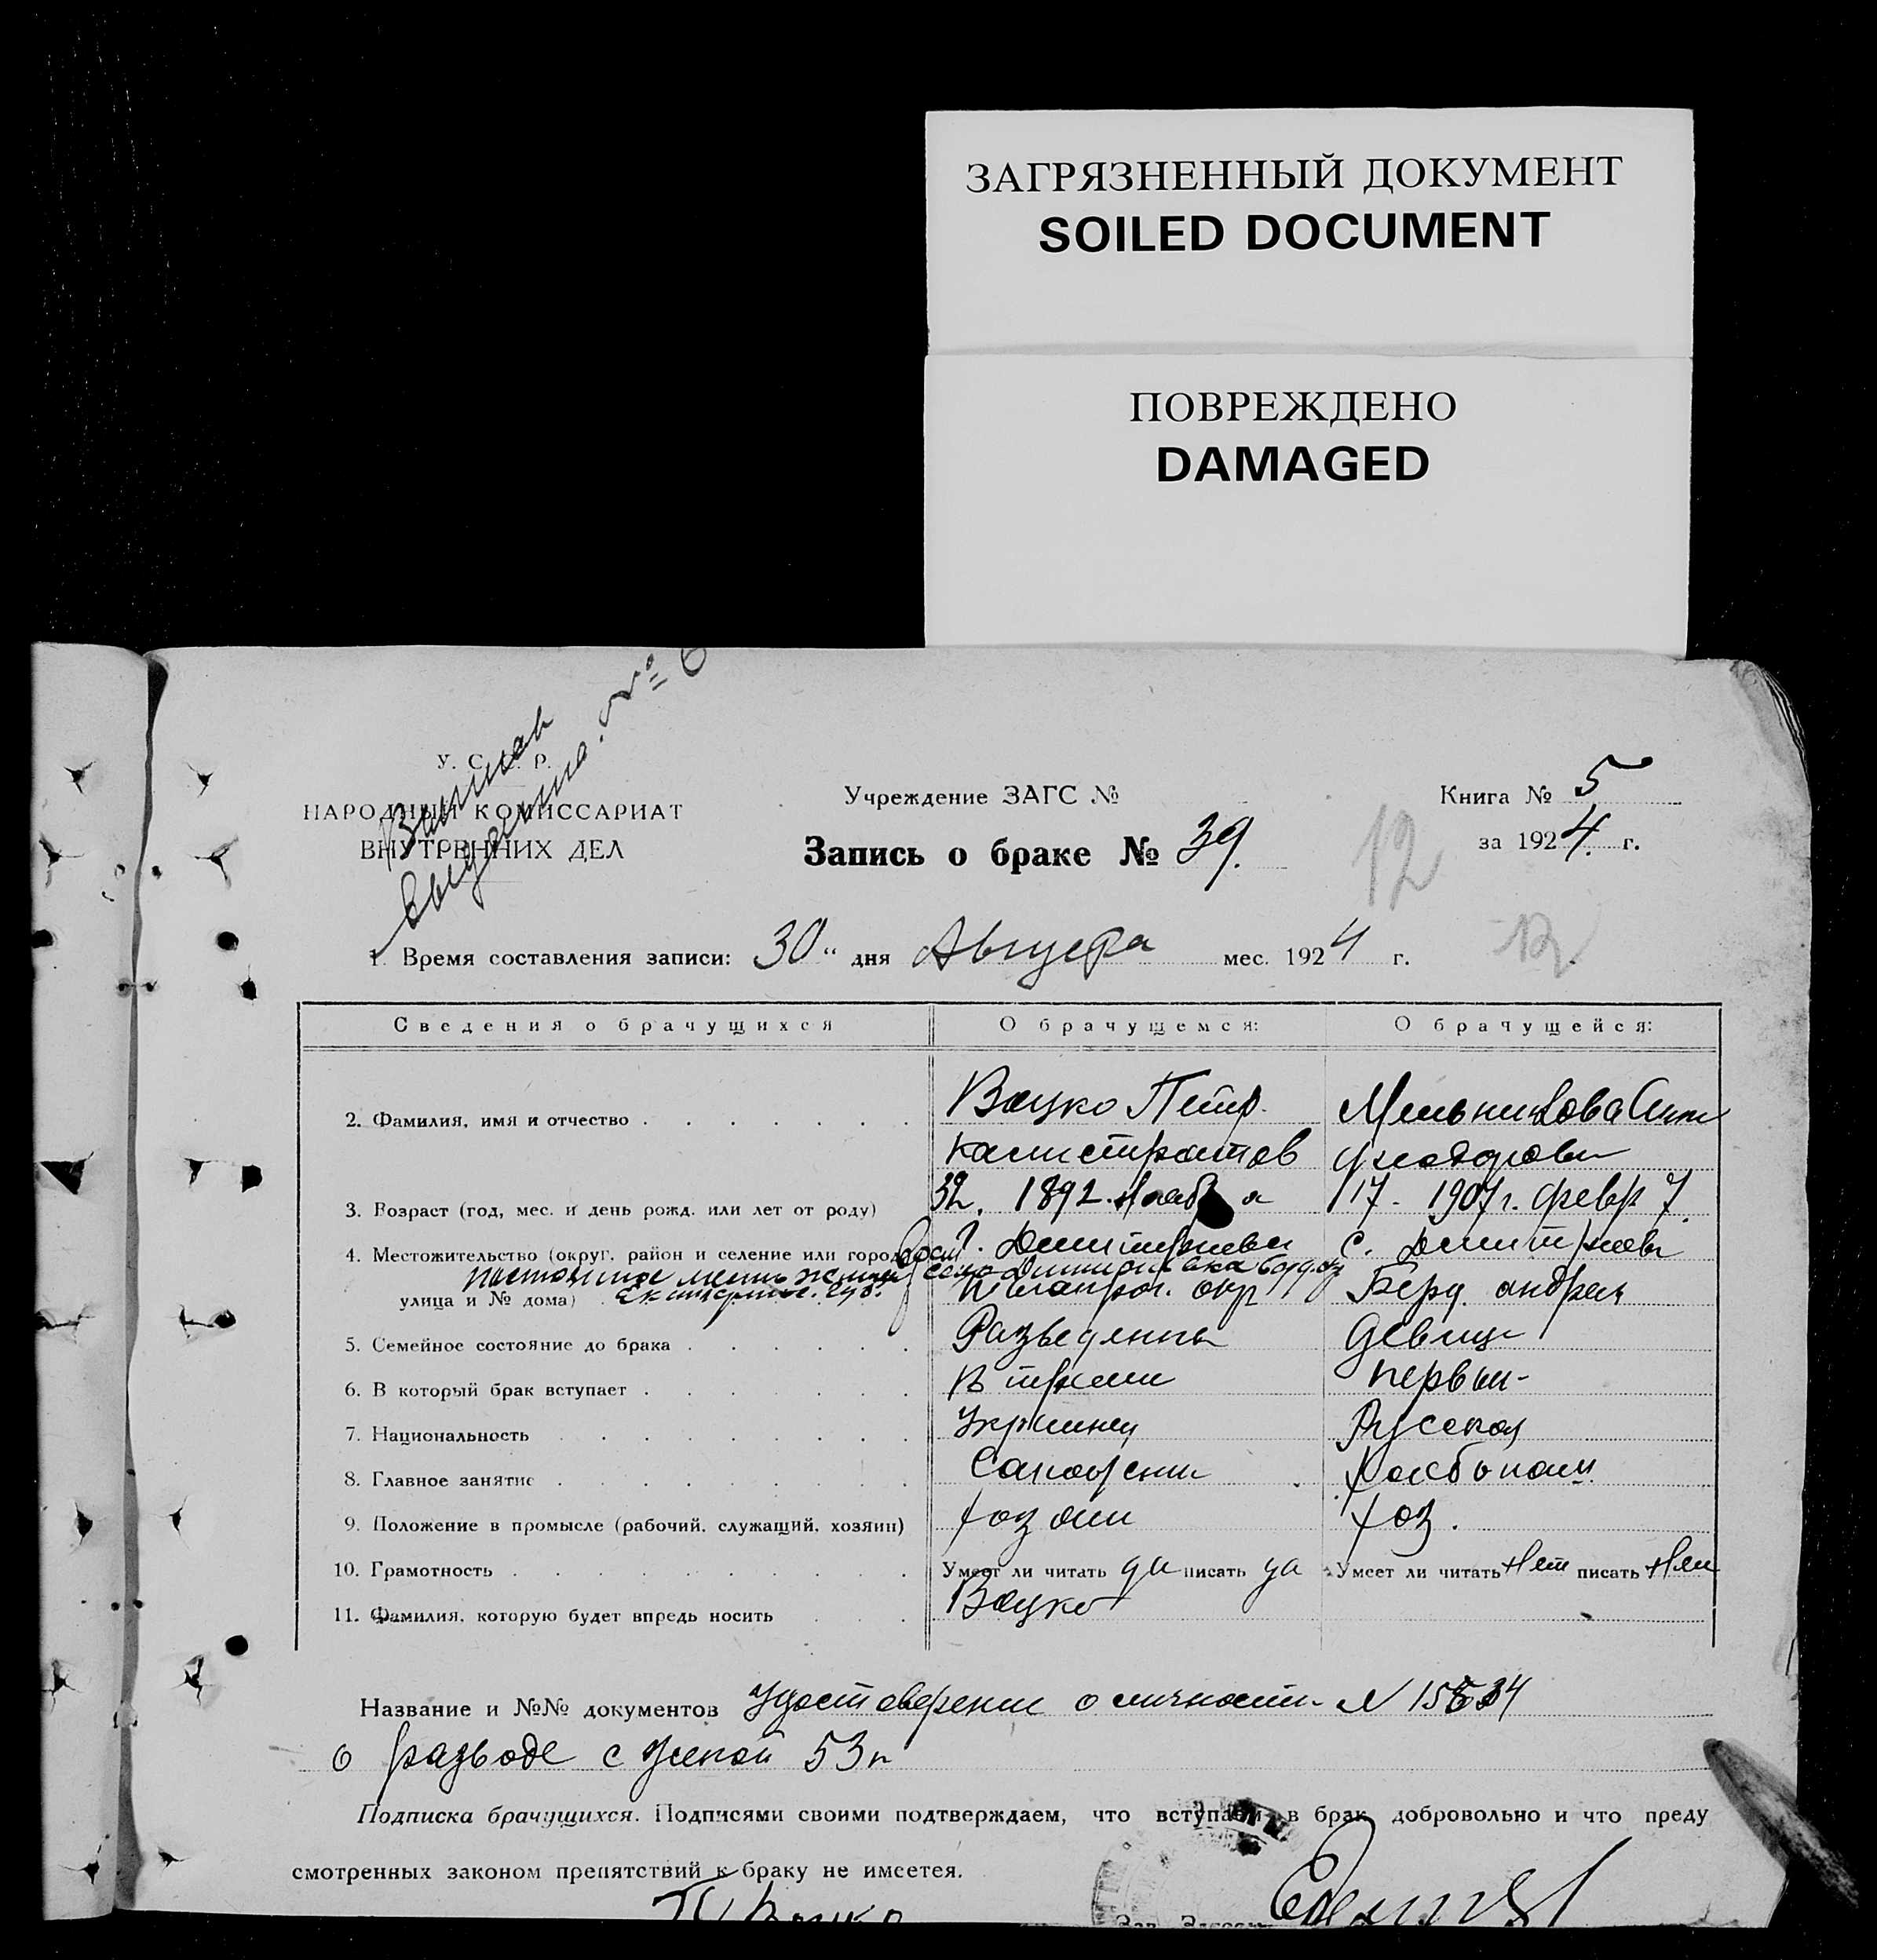 ЗАГРЯЗНЕННЫЙ ДОКУМЕНТ
SOILED DOCUMENT
ПОВРЕЖДЕНО
DAMAGED
У. С. Р.
НАРОДНЫЙ КОМИССАРИАТ
ВНУТРЕННИХ ДЕЛ
Учреждение ЗАГС №
Запись о браке № 39.
Книга № 5
за 1924. г.
12
1. Время составления записи: 30 " дня Августа мес. 1924 г.
Сведения о брачущихся О брачущемся: О брачущейся:
2. Фамилия, имя и отчество Вацко Петр Мельникова
Калистратов
3. Возраст (год, мес. и день рожд. или лет от роду) 32. 1892. 17 - 1907 г. февр 7.
4. Местожительство (округ, район и селение или город,
постоянное село
улица и № дома) окр Берд. андреев
5. Семейное состояние до брака Разведенный Девица
6. В который брак вступает первый-
7. Национальность Украинец Русская
8. Главное занятие
9. Положение в промысле (рабочий, служащий, хозяин) хозяин хоз.
10. Грамотность Умеет ли читать да писать да Умеет ли читать Нет писать Нет
11. Фамилия, которую будет впредь носить Вацко
Название и №№ документов Удостоверение о личности N
о разводе с женой 53
Подписка брачущихся. Подписями своими подтверждаем, что вступаем в брак добровольно и что преду
смотренных законом препятствий к браку не имеется.